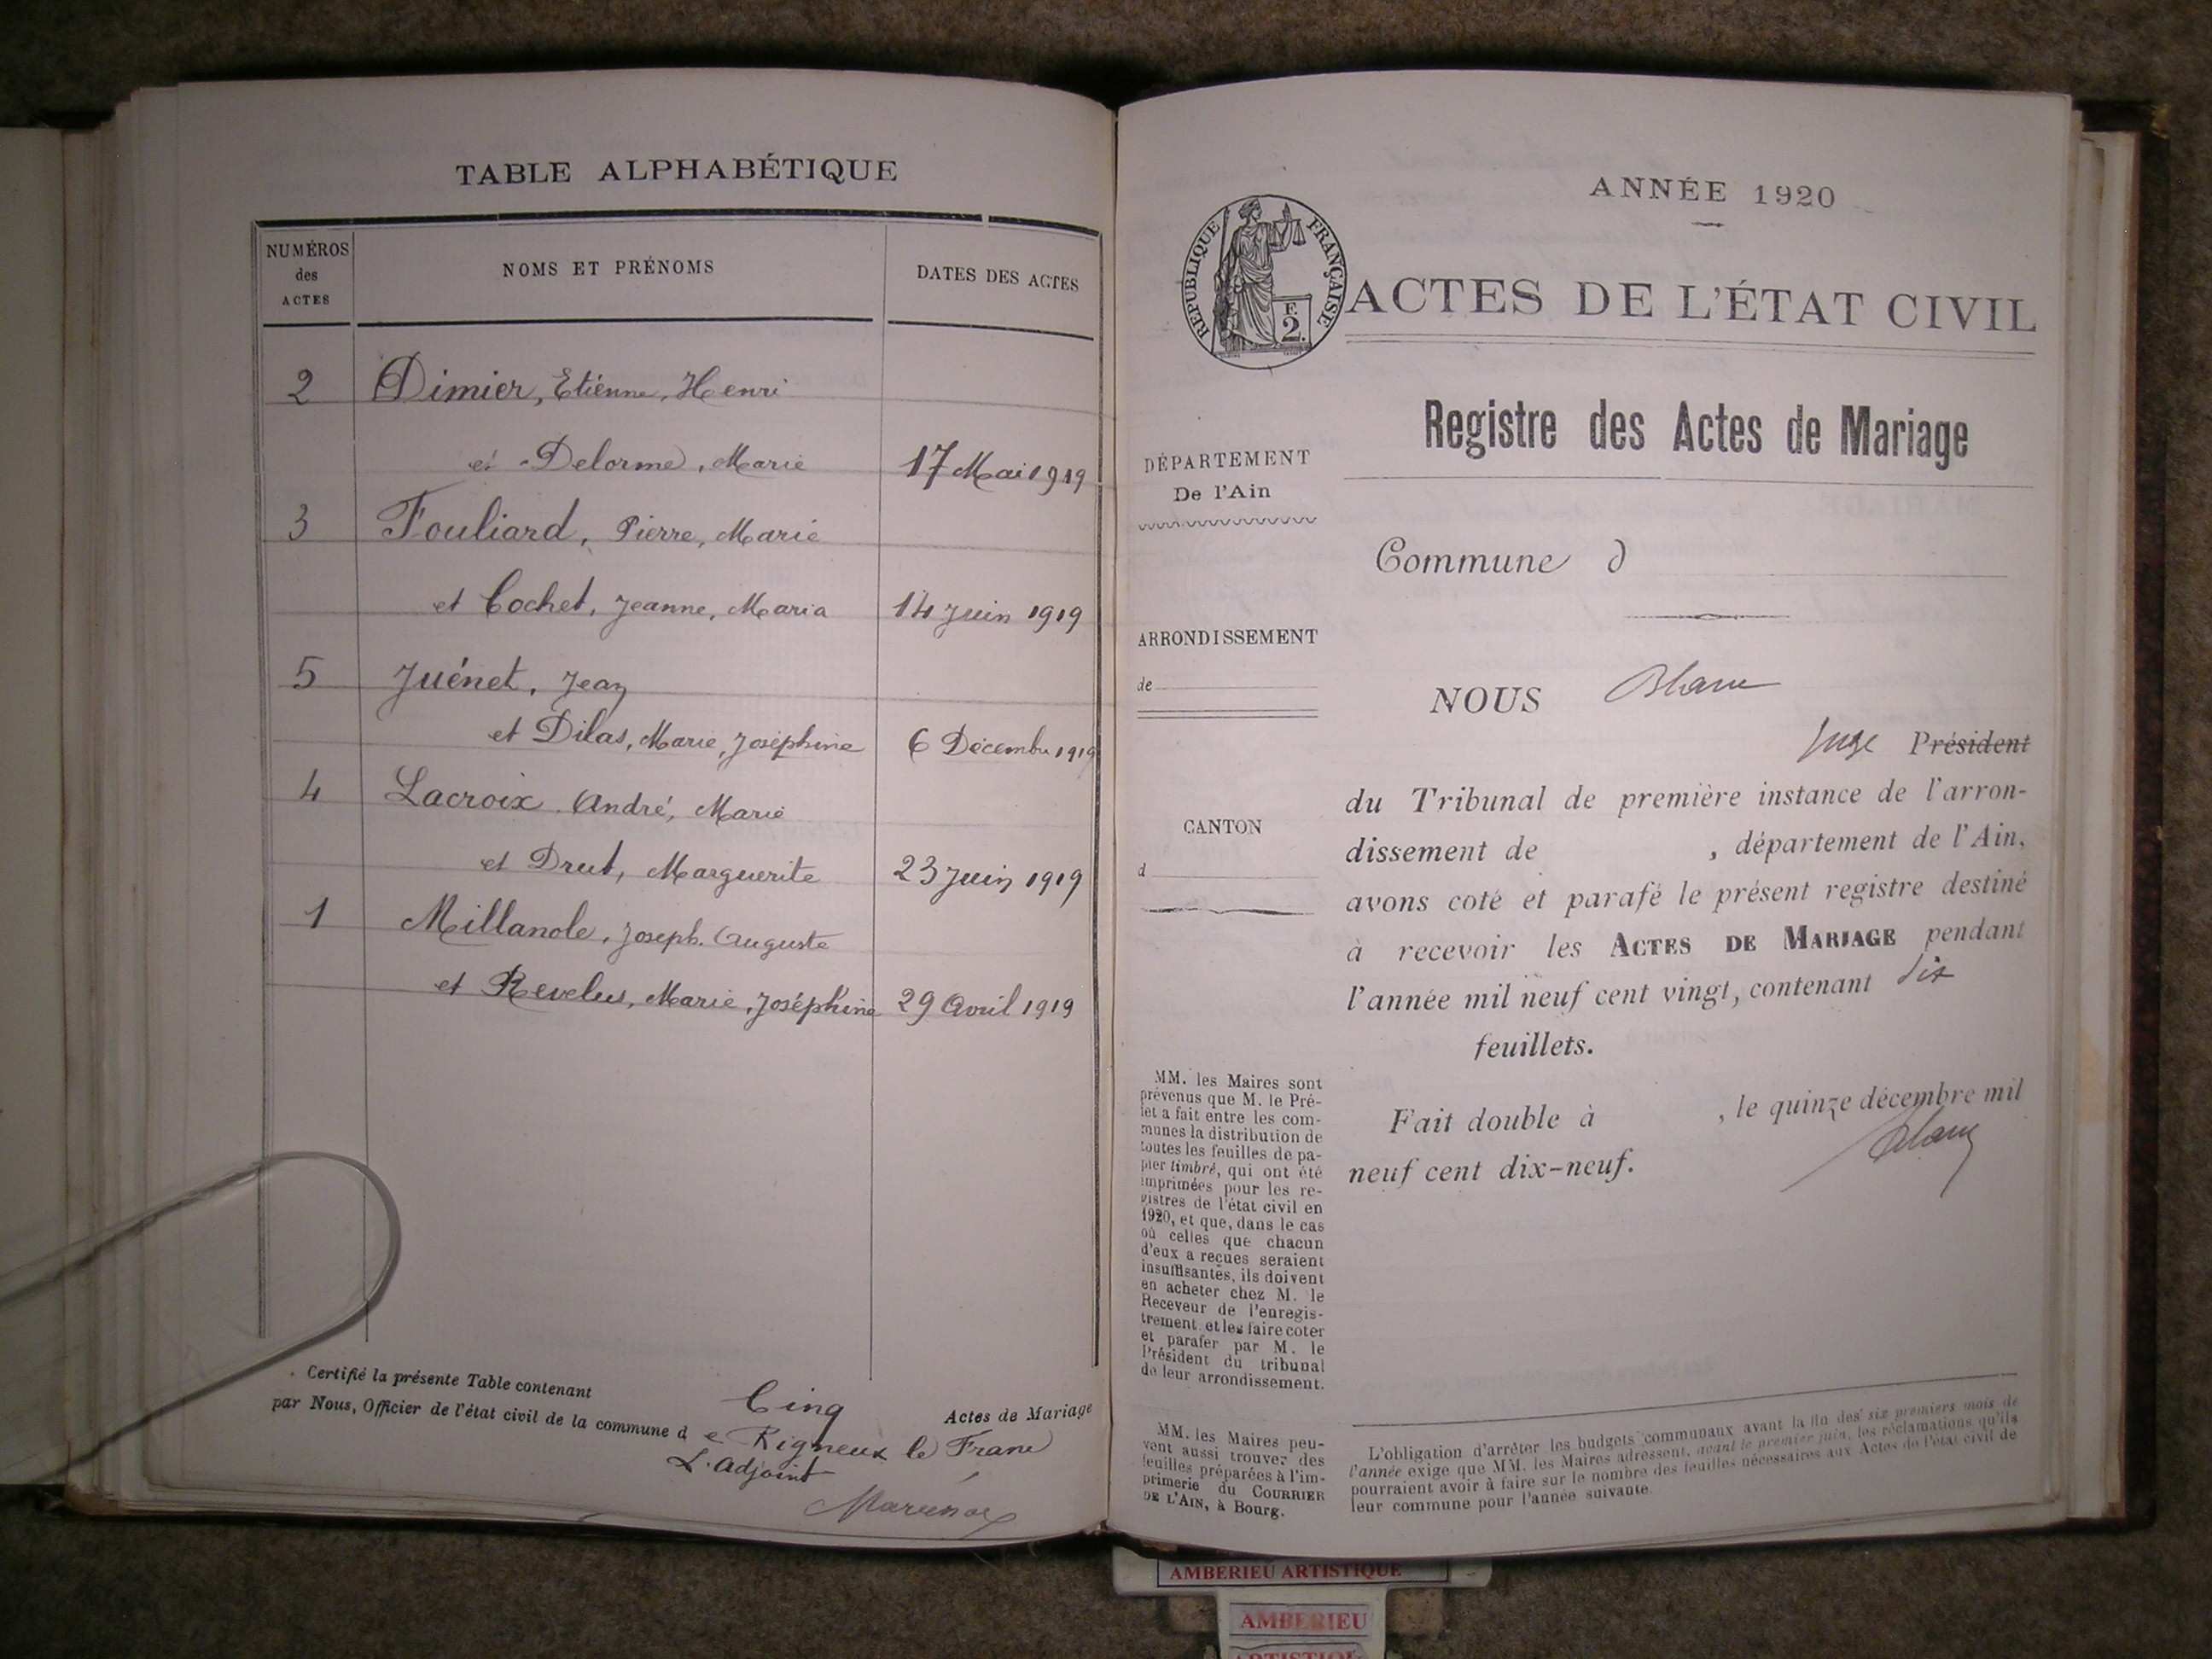 TABLE ALPHABÉTIQUE
NUMÉROS
des
ACTES
NOMS ET PRÉNOMS
DATES DES ACTES
2 Dimier, Etiénne, Henri
et Delorme, Marie 17 Mai 1919
3 Fouliard, Pierre, Marie
et Cochet, Jeanne, Maria 14 Juin 1919
5 Juénet, Jean
et Dilas, Marie, Joséphine 6 Décembre 1919
4 Lacroix André, Marie
et Drut, Marguerite 23 Juin 1919
1 Millanole, Joseph. Auguste
et Marie, Joséphine 29 Avril 1919
Certifié la présente Table contenant Cinq Actes de Mariage
par Nous, Officier de l'état civil de la commune d e Rigneux le Franc
L'adjoint
ANNÉE 1920
RÉPUBLIQUE FRANÇAISE
F.
2.
ACTES DE L'ÉTAT CIVIL
Registre des Actes de Mariage
DÉPARTEMENT
De l'Ain
Commune d
ARRONDISSEMENT
de
NOUS Blanc
Juge Président
du Tribunal de première instance de l'arron-
dissement de , département de l'Ain,
avons coté et parafé le présent registre destiné
à recevoir les ACTES DE MARIAGE pendant
l'année mil neuf cent vingt, contenant dix
feuillets.
Fait double à , le quinze décembre mil
neuf cent dix-neuf.
Blanc
CANTON
d
MM. les Maires sont
prévenus que M. le Pré-
fet a fait entre les com-
munes la distribution de
toutes les feuilles de pa-
pier timbré, qui ont été
imprimées pour les re-
gistres de l'état civil en
1920, et que, dans le cas
où celles que chacun
d'eux a reçues seraient
insuffisantes, ils doivent
en acheter chez M. le
Receveur de l'enregis-
trement et les faire coter
et parafer par M. le
Président du tribunal
de leur arrondissement.
MM. les Maires peu-
vent aussi trouver des
feuilles préparées à l'im-
primerie du COURRIER
DE L'AIN, à Bourg.
L'obligation d'arrêter les budgets communaux avant la fin des six premiers mois de
l'année exige que MM. les Maires adressent, avant le premier juin, les réclamations qu'ils
pourraient avoir à faire sur le nombre des feuilles nécessaires aux Actes de l'état civil de
leur commune pour l'année suivante.
AMBERIEU ARTISTIQUE
AMBERIEU
ARTISTIQUE